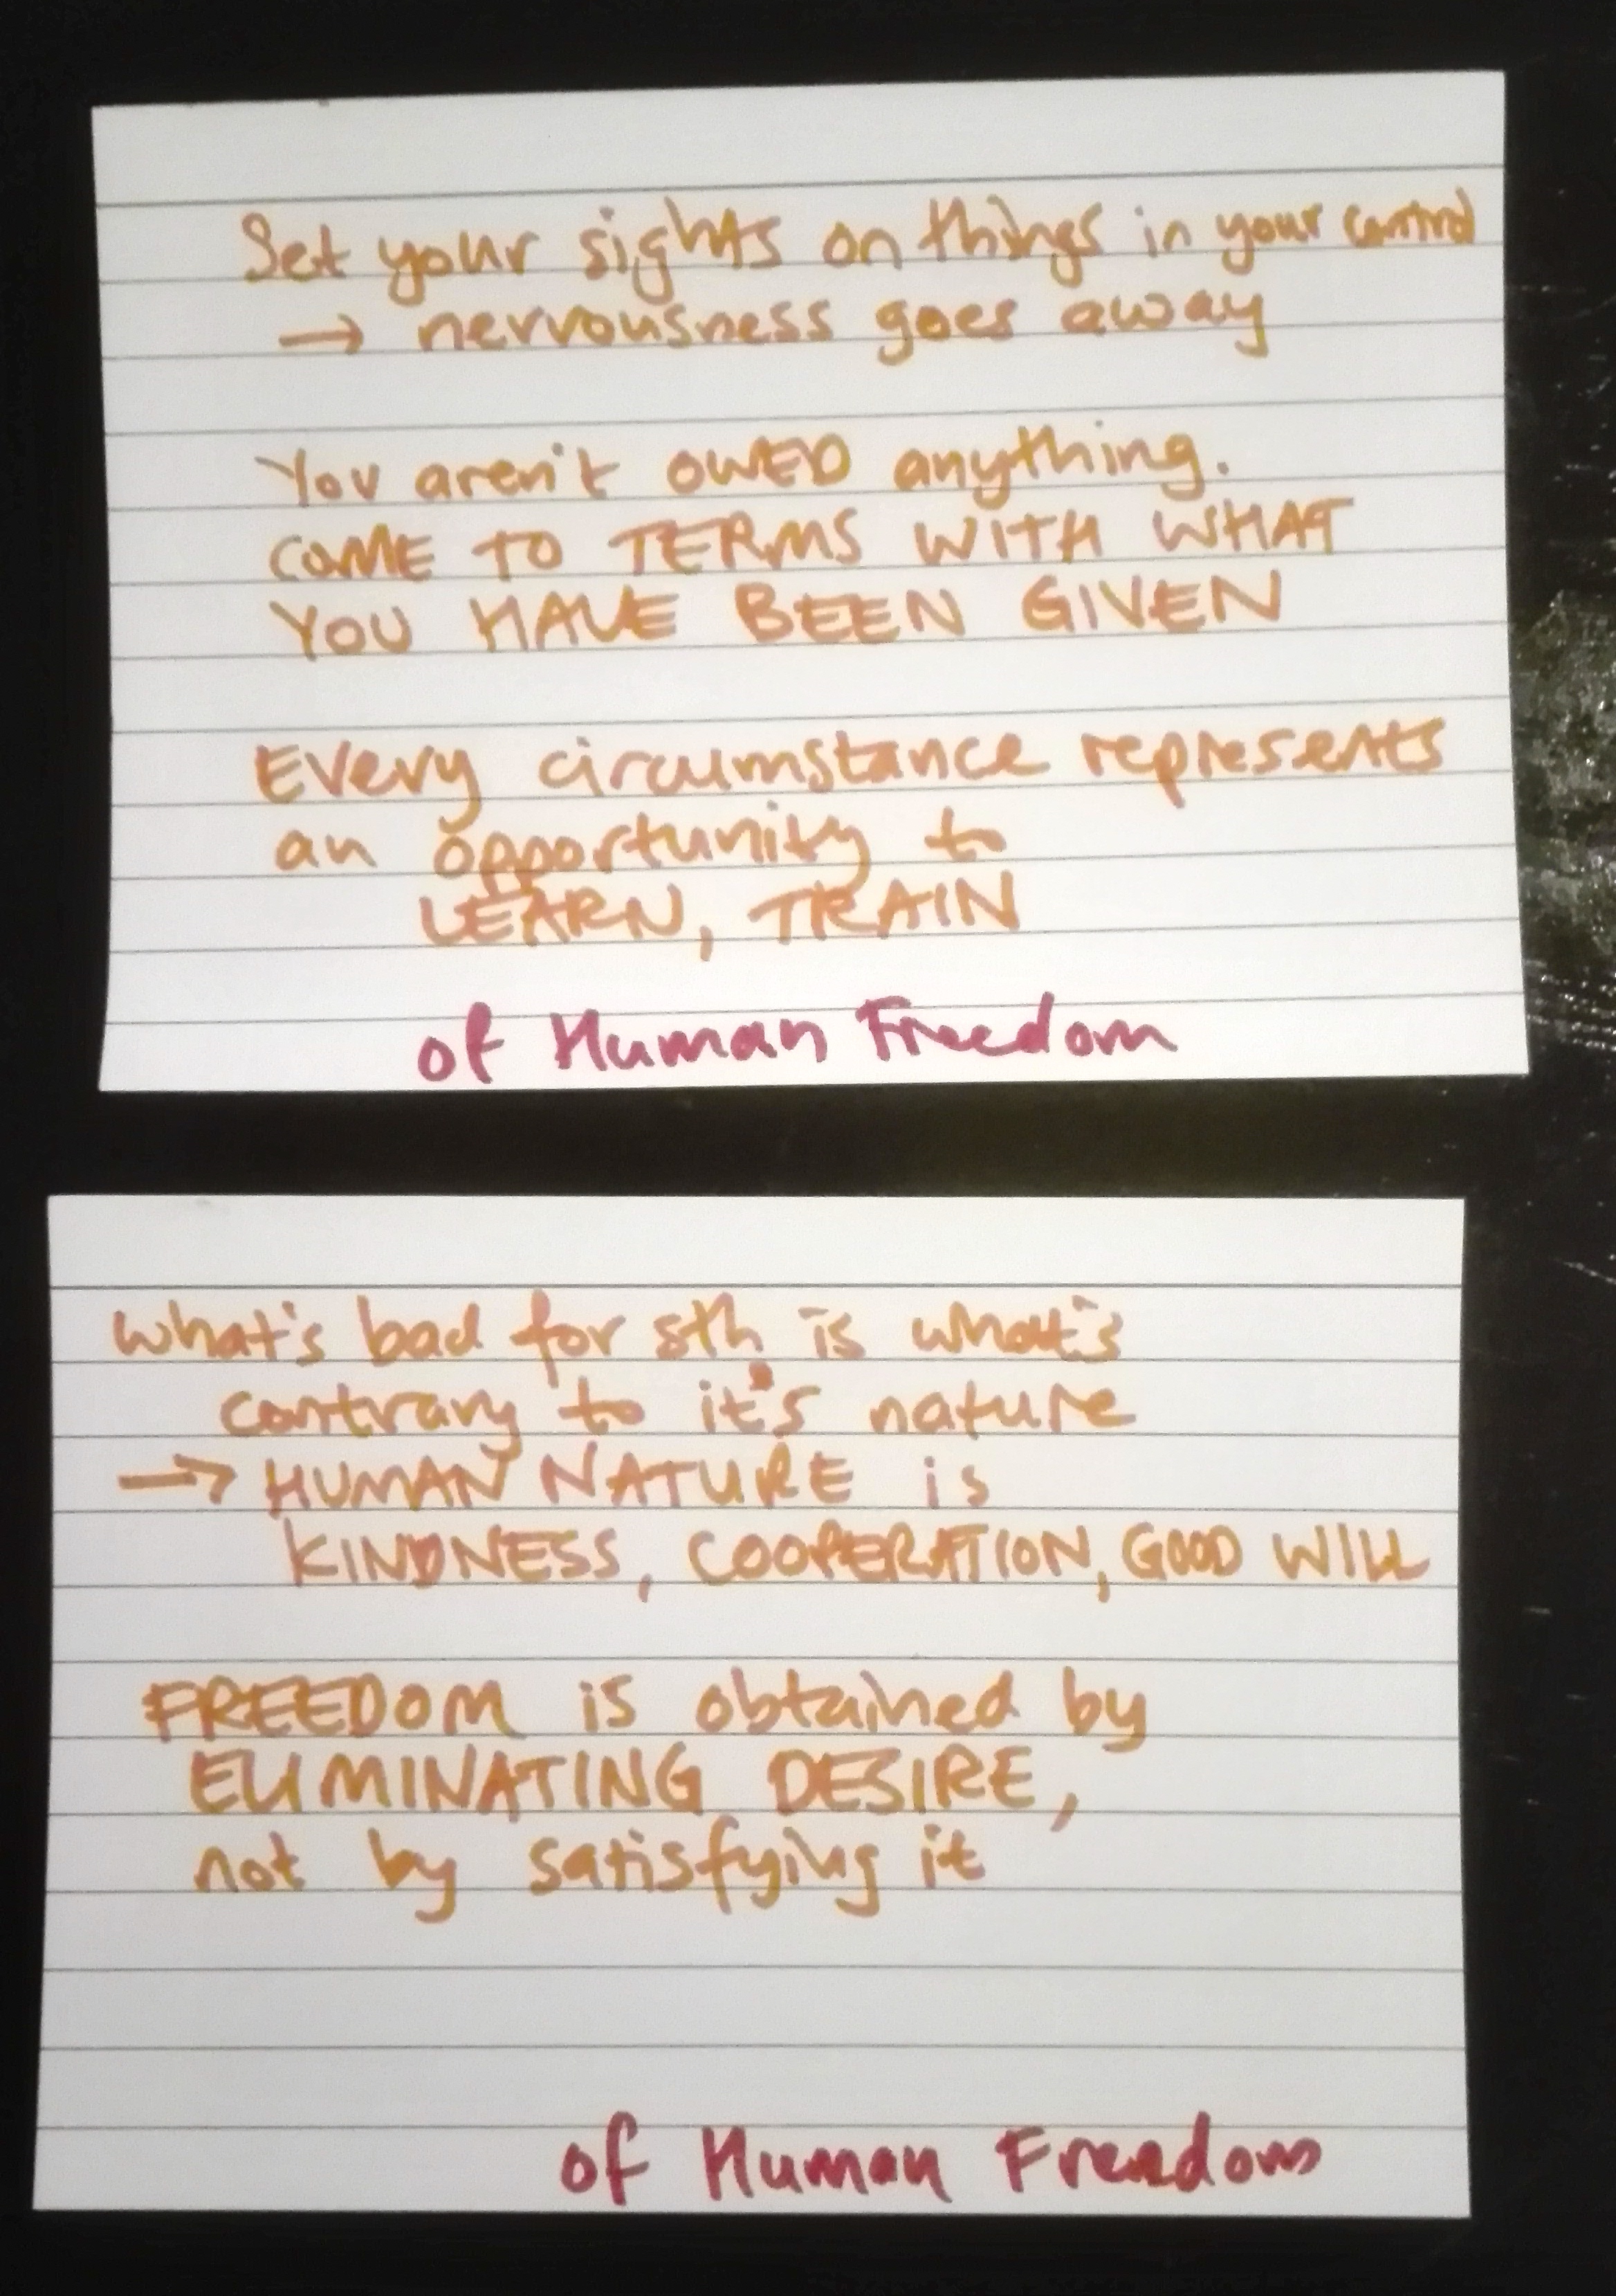 Set your sights on things in your control
→ nervousness goes away
You aren't OWED anything.
COME TO TERMS WITH WHAT
YOU HAVE BEEN GIVEN
Every circumstance represents
an opportunity to
LEARN, TRAIN
of Human Freedom
What's bad for sth is what's
contrary to it's nature
→ HUMAN NATURE is
KINDNESS, COOPERATION, GOOD WILL
FREEDOM is obtained by
ELIMINATING DESIRE,
not by satisfying it
of Human Freedom